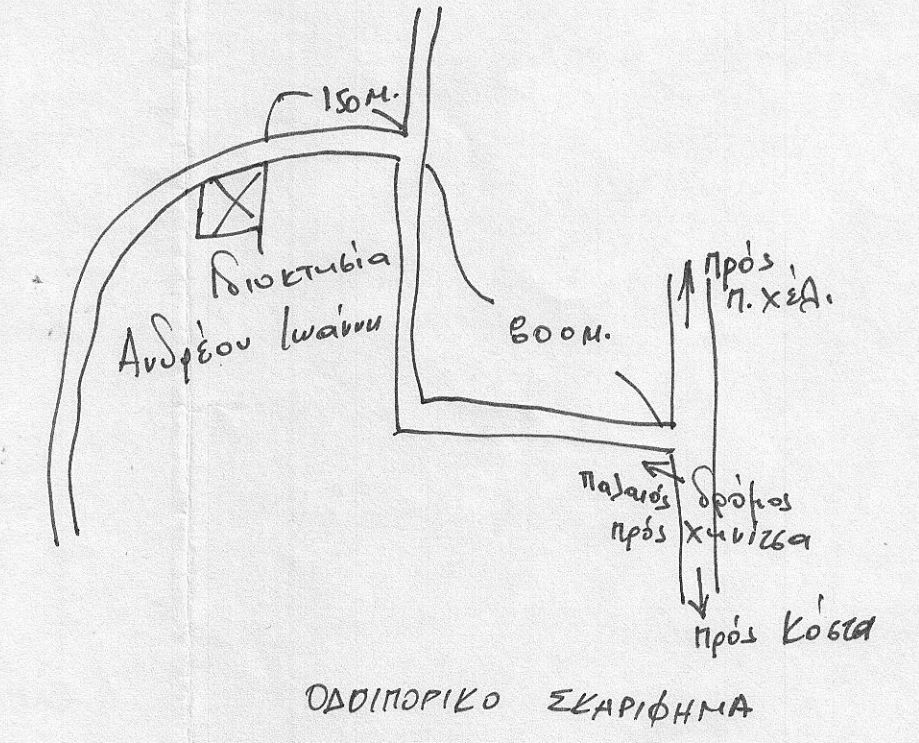 150 μ.
Ιδιοκτησία
Ανδρέου Ιωάννη
800 μ.
πρός
Π. Χέλ.
Παλαιός δρόμος
πρός Χηνίτσα
πρός Κόστα
ΟΔΟΙΠΟΡΙΚΟ ΣΚΑΡΙΦΗΜΑ